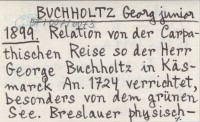 BUCHHOLTZ Georg junior
1899. Relation von der Carpa-
thischen Reise so der Herr
George Buchholtz in Käs-
marck An. 1724 verrichtet,
besonders von dem grünen
See. Breslauer physisch-